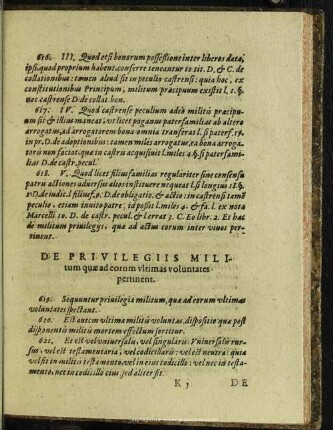 616. III. Quod etsi bonorum possessione inter liberos data,
ipsi, quod proprium habent, conferre teneantur to tit. D. & C. de
collationibus: tamen aliud sit in peculio castrensi: quia hoc, ex
constitutionibus Principum, militum præcipuum existit l. 1. §.
nec castrense D. de collat. bon.
617. IV. Quod castrense peculium adeò militis præcipu-
um sit & illius maneat: vt licet paganus paterfamilias ab altero
arrogatus, ad arrogatorem bona omnia transferat l. si paterf. 15.
in pr. D. de adoptionibus: tamen miles arrogatus, ea bona arroga-
torii non faciat, quæ in castris acquisiuit l. miles 4. §. si paterfami-
lias D. de castr. pecul.
618. V. Quod licet filiusfamilias regulariter sine consensu
patris actiones aduersus alios instituere nequeat l. si longius 18. §.
1. D. de iudic. l. filius f. 9. D. de obligatio. & actio: in castrensi tamẽ
peculio, etiam inuito patre, id possit l. miles 4. & fa. l. ex nota
Marcelli 10. D. de castr. pecul. & l. erras 7. C. Eo libr. 2. Et hæc
de militum privilegijs, quæ ad actum eorum inter viuos per-
tinent.
DE PRIVILEGIIS MILI-
tum quæ ad eorum vltimas voluntates
pertinent.
619. Sequuntur privilegia militum, quæ ad eorum vltimas
voluntates spectant.
620. Est autem vltima militis voluntas, dispositio quæ post
disponentis militis mortem effectum sortitur.
621. Et est vel vniuersalis, vel singularis: Vniuersalis rur-
sus, vel est testamentaria, vel codicillaris: vel est neutra: quia
vel fit in militis testamento, vel in eius codicillo: vel nec in testa-
mento, nec in codicillo eius sed aliter fit.
K 3 DE